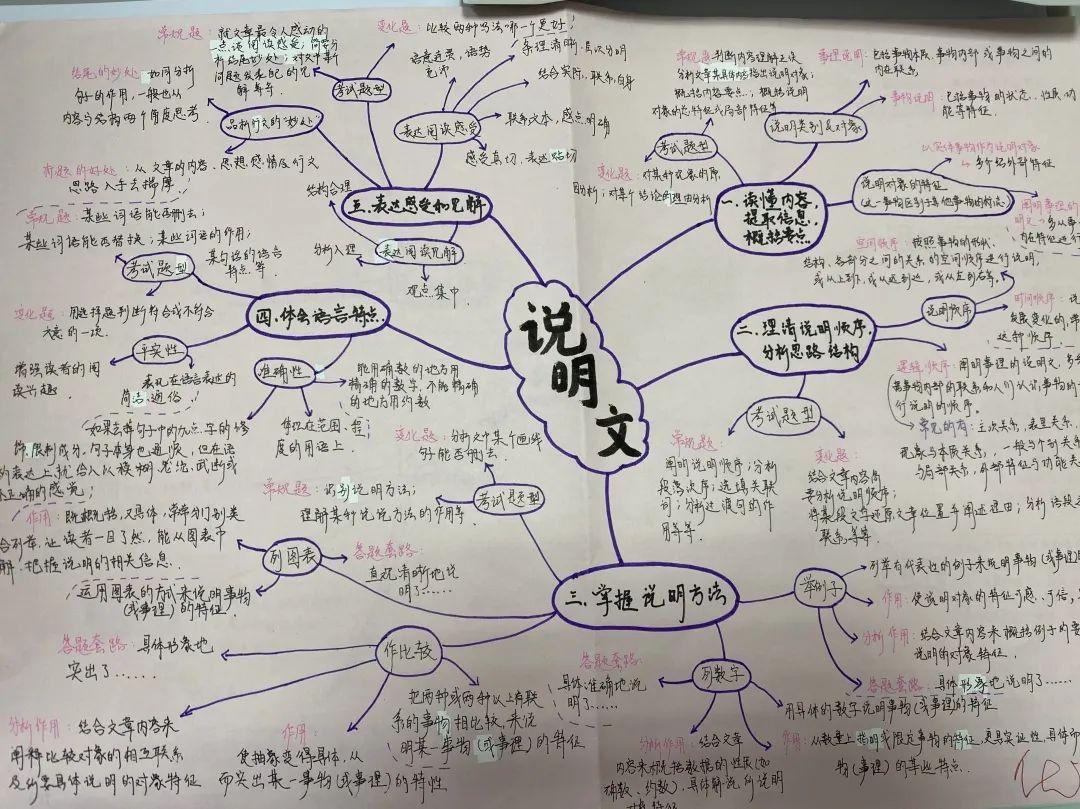 说明文
一.读懂内容,
提取信息,
概括要点
说明类别及对象
事理说明:包括事物本质、事物内部或事物之间的
内在联系.
事物说明:包括事物的状态、性质、功
能等特征.
说明对象的特征
(这一事物区别于其他事物的标志)
以实体事物作为说明对象
→多介绍外部特征
阐明事理的
明文→多从事
内在特征进行
考试题型
常规题:判断内容理解正误
分析文章某具体内容指出说明对象;
概括内容要点;概括说明
对象的总特征或局部特征等
变化题:对某种现象的原
因分析;对某个结论的理由分析
二.理清说明顺序,
分析思路结构
说明顺序
空间顺序:按照事物的形状、
结构、各部分之间的关系的空间顺序进行说明,
或从上到下,或从远到近,或从左到右等.
时间顺序:说
发展变化的,常
这种顺序
逻辑顺序:阐明事理的说明文,多
事物内部的联系和人们认识事物的
行说明的顺序。
常见的有:主次关系,表里关系,
现象与本质关系,一般与个别关系
与局部关系,外部特征与功能关系
考试题型
常规题:
阐明说明顺序;分析
段落次序;选填关联
词;分析过渡句的作
用等等
变化题:
结合文章内容简
要分析说明顺序;
将某段文字还原文章位置并阐述理由;分析语段之
联系,等等.
三.掌握说明方法
举例子
列举有代表性的例子来说明事物(或事理)
作用:使说明对象的特征可感、可信,
分析作用:结合文章内容来概括例子的要
说明的对象特征.
答题套路:具体形象地说明了……
列数字
用具体的数字说明事物(或事理)的特征
作用:从数量上指明或限定事物的特征,更具实证性,具体而
物(事理)的某些特点.
分析作用:结合文章
内容来概括数据的性质(如
确数、约数),具体解说所说明
对象特征
答题套路:
具体准确地说
明了……
作比较
把两种或两种以上有联
系的事物相比较,来说
明某一事物(或事理)的特征
作用:
使抽象变得具体,从
而突出某一事物(或事理)的特性
分析作用:结合文章内容来
阐释比较对象的相互联系
及所要具体说明的对象特征
答题套路:具体形象地
突出了……
列图表
答题套路:
直观清晰地说
明了……
运用图表的方式来说明事物
(或事理)的特征
作用:既概括,又具体,常常分门别类
列举,让读者一目了然,能从图表中
把握说明的相关信息.
考试题型
常规题:识别说明方法;
理解某种说明方法的作用等
变化题:分析文中某个画线
句子能否删去.
四.体会语言特点.
考试题型
常规题:某些词语能否删去;
某些词语能否替换;某些词语的作用;
某句话的语言
特点等
变化题:用选择题判断符合或不符合
文意的一项.
平实性
增强读者的阅
读兴趣
表现在语言表达的
简洁、通俗
准确性
能用确数的地方用
精确的数字,不能精确
的地方用约数
体现在范围、程
度的用语上
如果去掉句子中的加点字的修
饰、限制成分,句子本身也通顺,但在语
的表达上就给人以模糊、笼统、武断或
不正确的感觉;
五.表达感受和见解
考试题型
常规题:就文章最令人感动的
点谈阅读感受;简要分
析结尾妙处;对文中某个
问题发表自己的见
解等等
变化题:比较两种写法哪一个更好;
品析行文的“妙处”
结尾的妙处:如何分析
句子的作用,一般也从
内容与结构两个角度思考.
标题的妙处:从文章的内容、思想感情及行文
思路入手去揣摩
表达阅读感受
条理清晰,层次分明
结合实际,联系自身
联系文本,感点明确
感受真切,表达贴切
表达阅读见解
结构合理
分析入理
观点集中